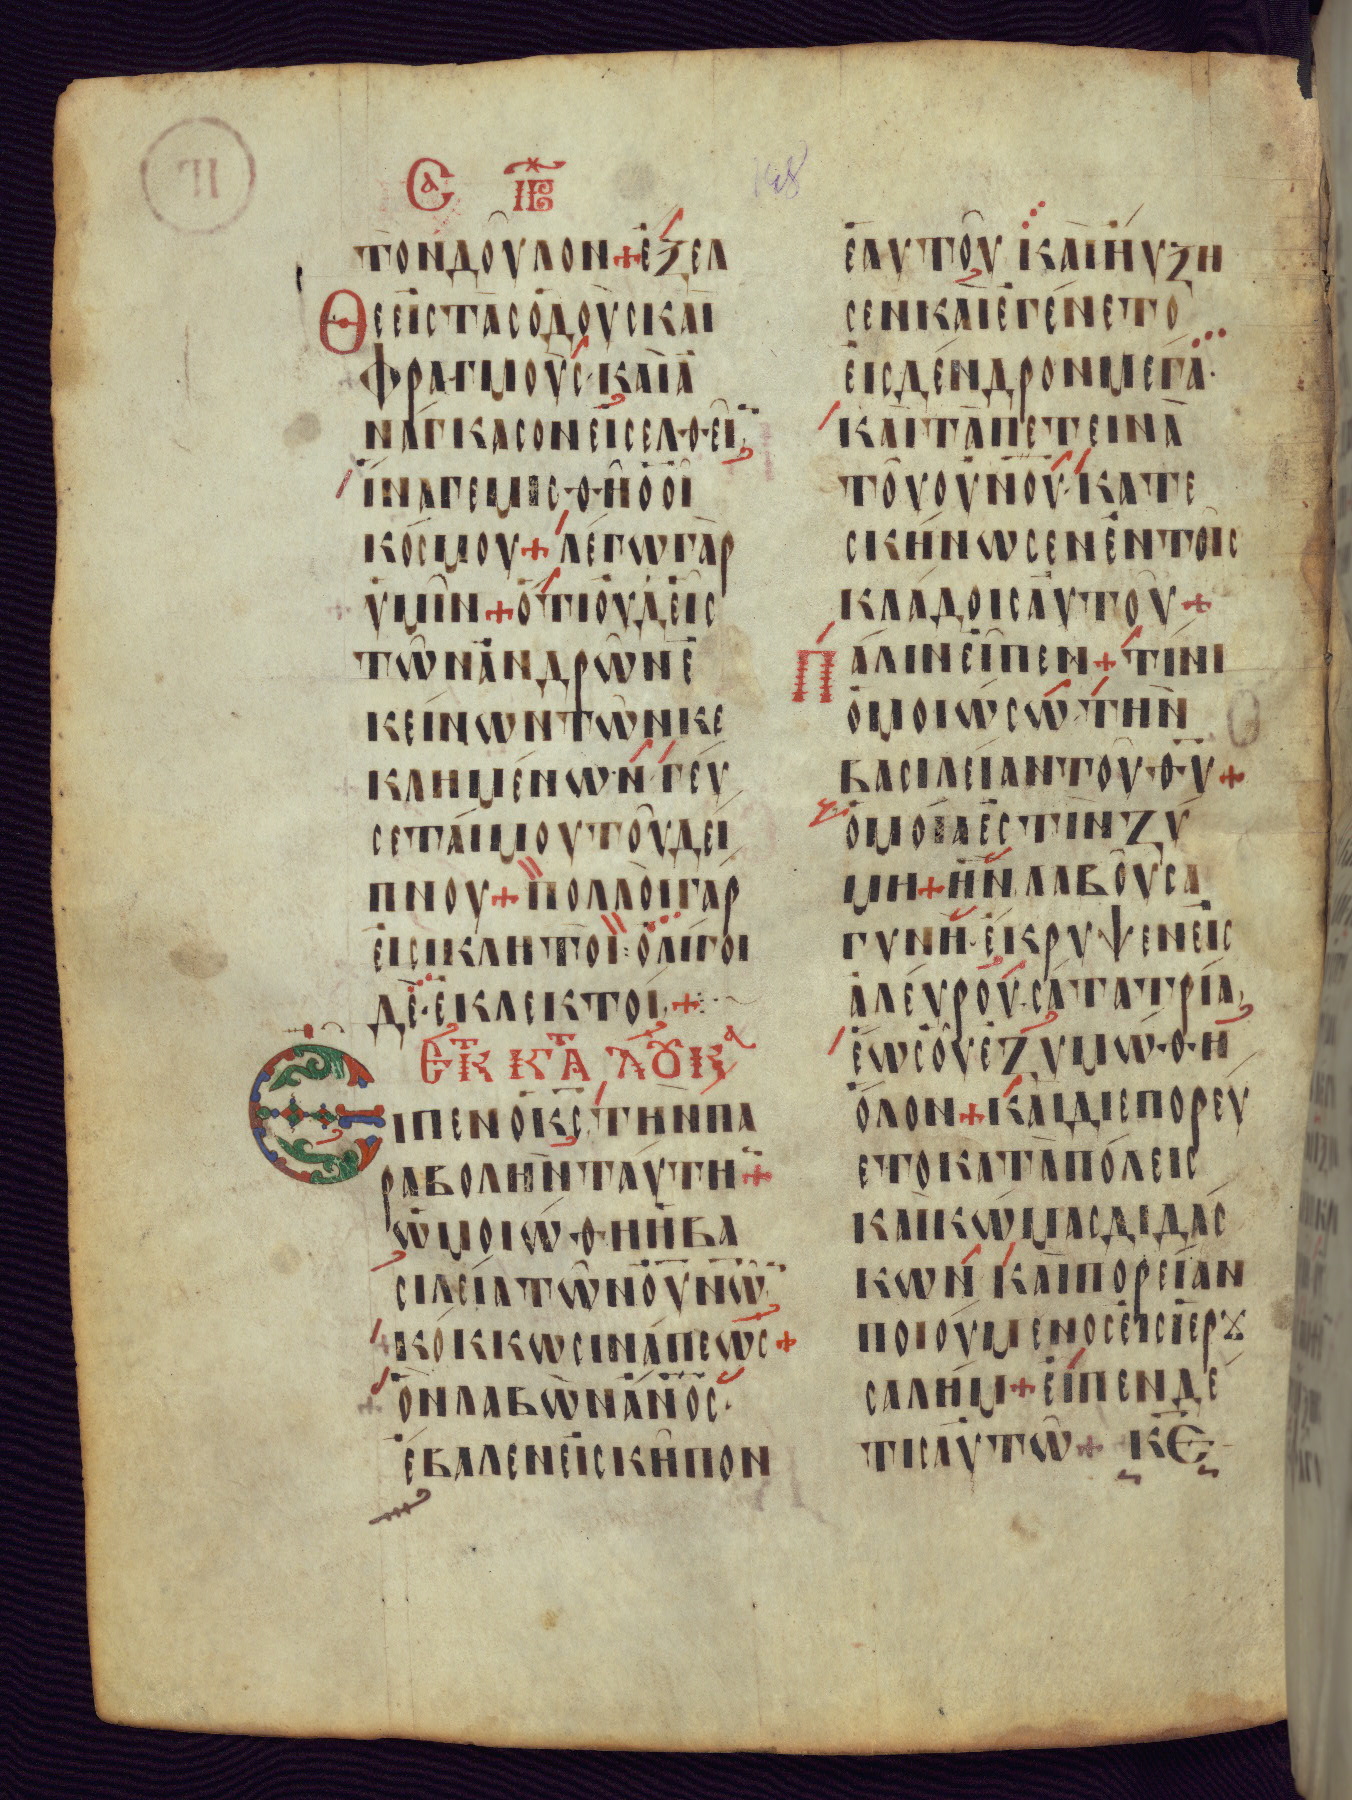 ΤΟΝΔΟΥΛΟΝ + ΕΞΕΛ
ΘΕΕΙΣΤΑΣΟΔΟΥΣΚΑΙ
ΦΡΑΓΜΟΥΣ · ΚΑΙΑ
ΝΑΓΚΑΣΟΝΕΙΣΕΛ·Θ·ΕΙ̅
ΙΝΑΓΕΜΙΣ·Θ·ΗΟΟΙ
ΚΟΣΜΟΥ + ΛΕΓΩΓΑΡ
ΥΜΙΝ + ΟΤΙΟΥΔΕΙΣ
ΤΩΝΑΝΔΡΩΝΕ
ΚΕΙΝΩΝΤΩΝΚΕ
ΚΛΗΜΕΝΩΝ · ΓΕΥ
ΣΕΤΑΙΜΟΥΤΟΥΔΕΙ
ΠΝΟΥ + ΠΟΛΛΟΙΓΑΡ
ΕΙΣΙΚΛΗΤΟΙ : ΟΛΙΓΟΙ
ΔΕ · ΕΚΛΕΚΤΟΙ +
ΕΚ ΚΤΑ ΛΟΥΚ
ΕΙΠΕΝΟΚ̅Σ̅ · ΤΗΝΠΑ
ΡΑΒΟΛΗΝΤΑΥΤΗ̅ +
ΩΜΟΙΩ·Θ·ΗΗΒΑ
ΣΙΛΕΙΑΤΩΝΟΥ̅Ν̅Ω̅
ΚΟΚΚΩΣΙΝΑΠΕΩΣ +
ΟΝΛΑΒΩΝΑΝ̅Ο̅Σ̅ ·
ΕΒΑΛΕΝΕΙΣΚΗΠΟΝ
ΕΑΥΤΟΥ ΚΑΙΗΥΞΗ
ΣΕΝΚΑΙΕΓΕΝΕΤΟ
ΕΙΣΔΕΝΔΡΟΝΜΕΓΑ ·
ΚΑΙΤΑΠΕΤΕΙΝΑ
ΤΟΥΟΥ̅Ν̅Ο̅Υ̅ · ΚΑΤΕ
ΣΚΗΝΩΣΕΝΕΝΤΟΙΣ
ΚΛΑΔΟΙΣΑΥΤΟΥ +
ΠΑΛΙΝΕΙΠΕΝ + ΤΙΝΙ
ΟΜΟΙΩΣΩ · ΤΗΝ
ΒΑΣΙΛΕΙΑΝΤΟΥ·Θ·Υ̅ +
ΟΜΟΙΑΕΣΤΙΝΖΥ
ΜΗ + ΗΝΛΑΒΟΥΣΑ
ΓΥΝΗ · ΕΚΡΥΨΕΝΕΙΣ
ΑΛΕΥΡΟΥ · ΣΑΤΑΤΡΙΑ,
ΕΩΣΟΥΕΖΥΜΩ·Θ·Η
ΟΛΟΝ + ΚΑΙΔΙΕΠΟΡΕΥ
ΕΤΟΚΑΤΑΠΟΛΕΙΣ
ΚΑΙΚΩΜΑΣΔΙΔΑΣ
ΚΩΝ · ΚΑΙΠΟΡΕΙΑΝ
ΠΟΙΟΥΜΕΝΟΣΕΙΣΙΕΡȢ
ΣΑΛΗΜ + ΕΙΠΕΝΔΕ
ΤΙΣΑΥΤΩ + Κ̅Ε̅